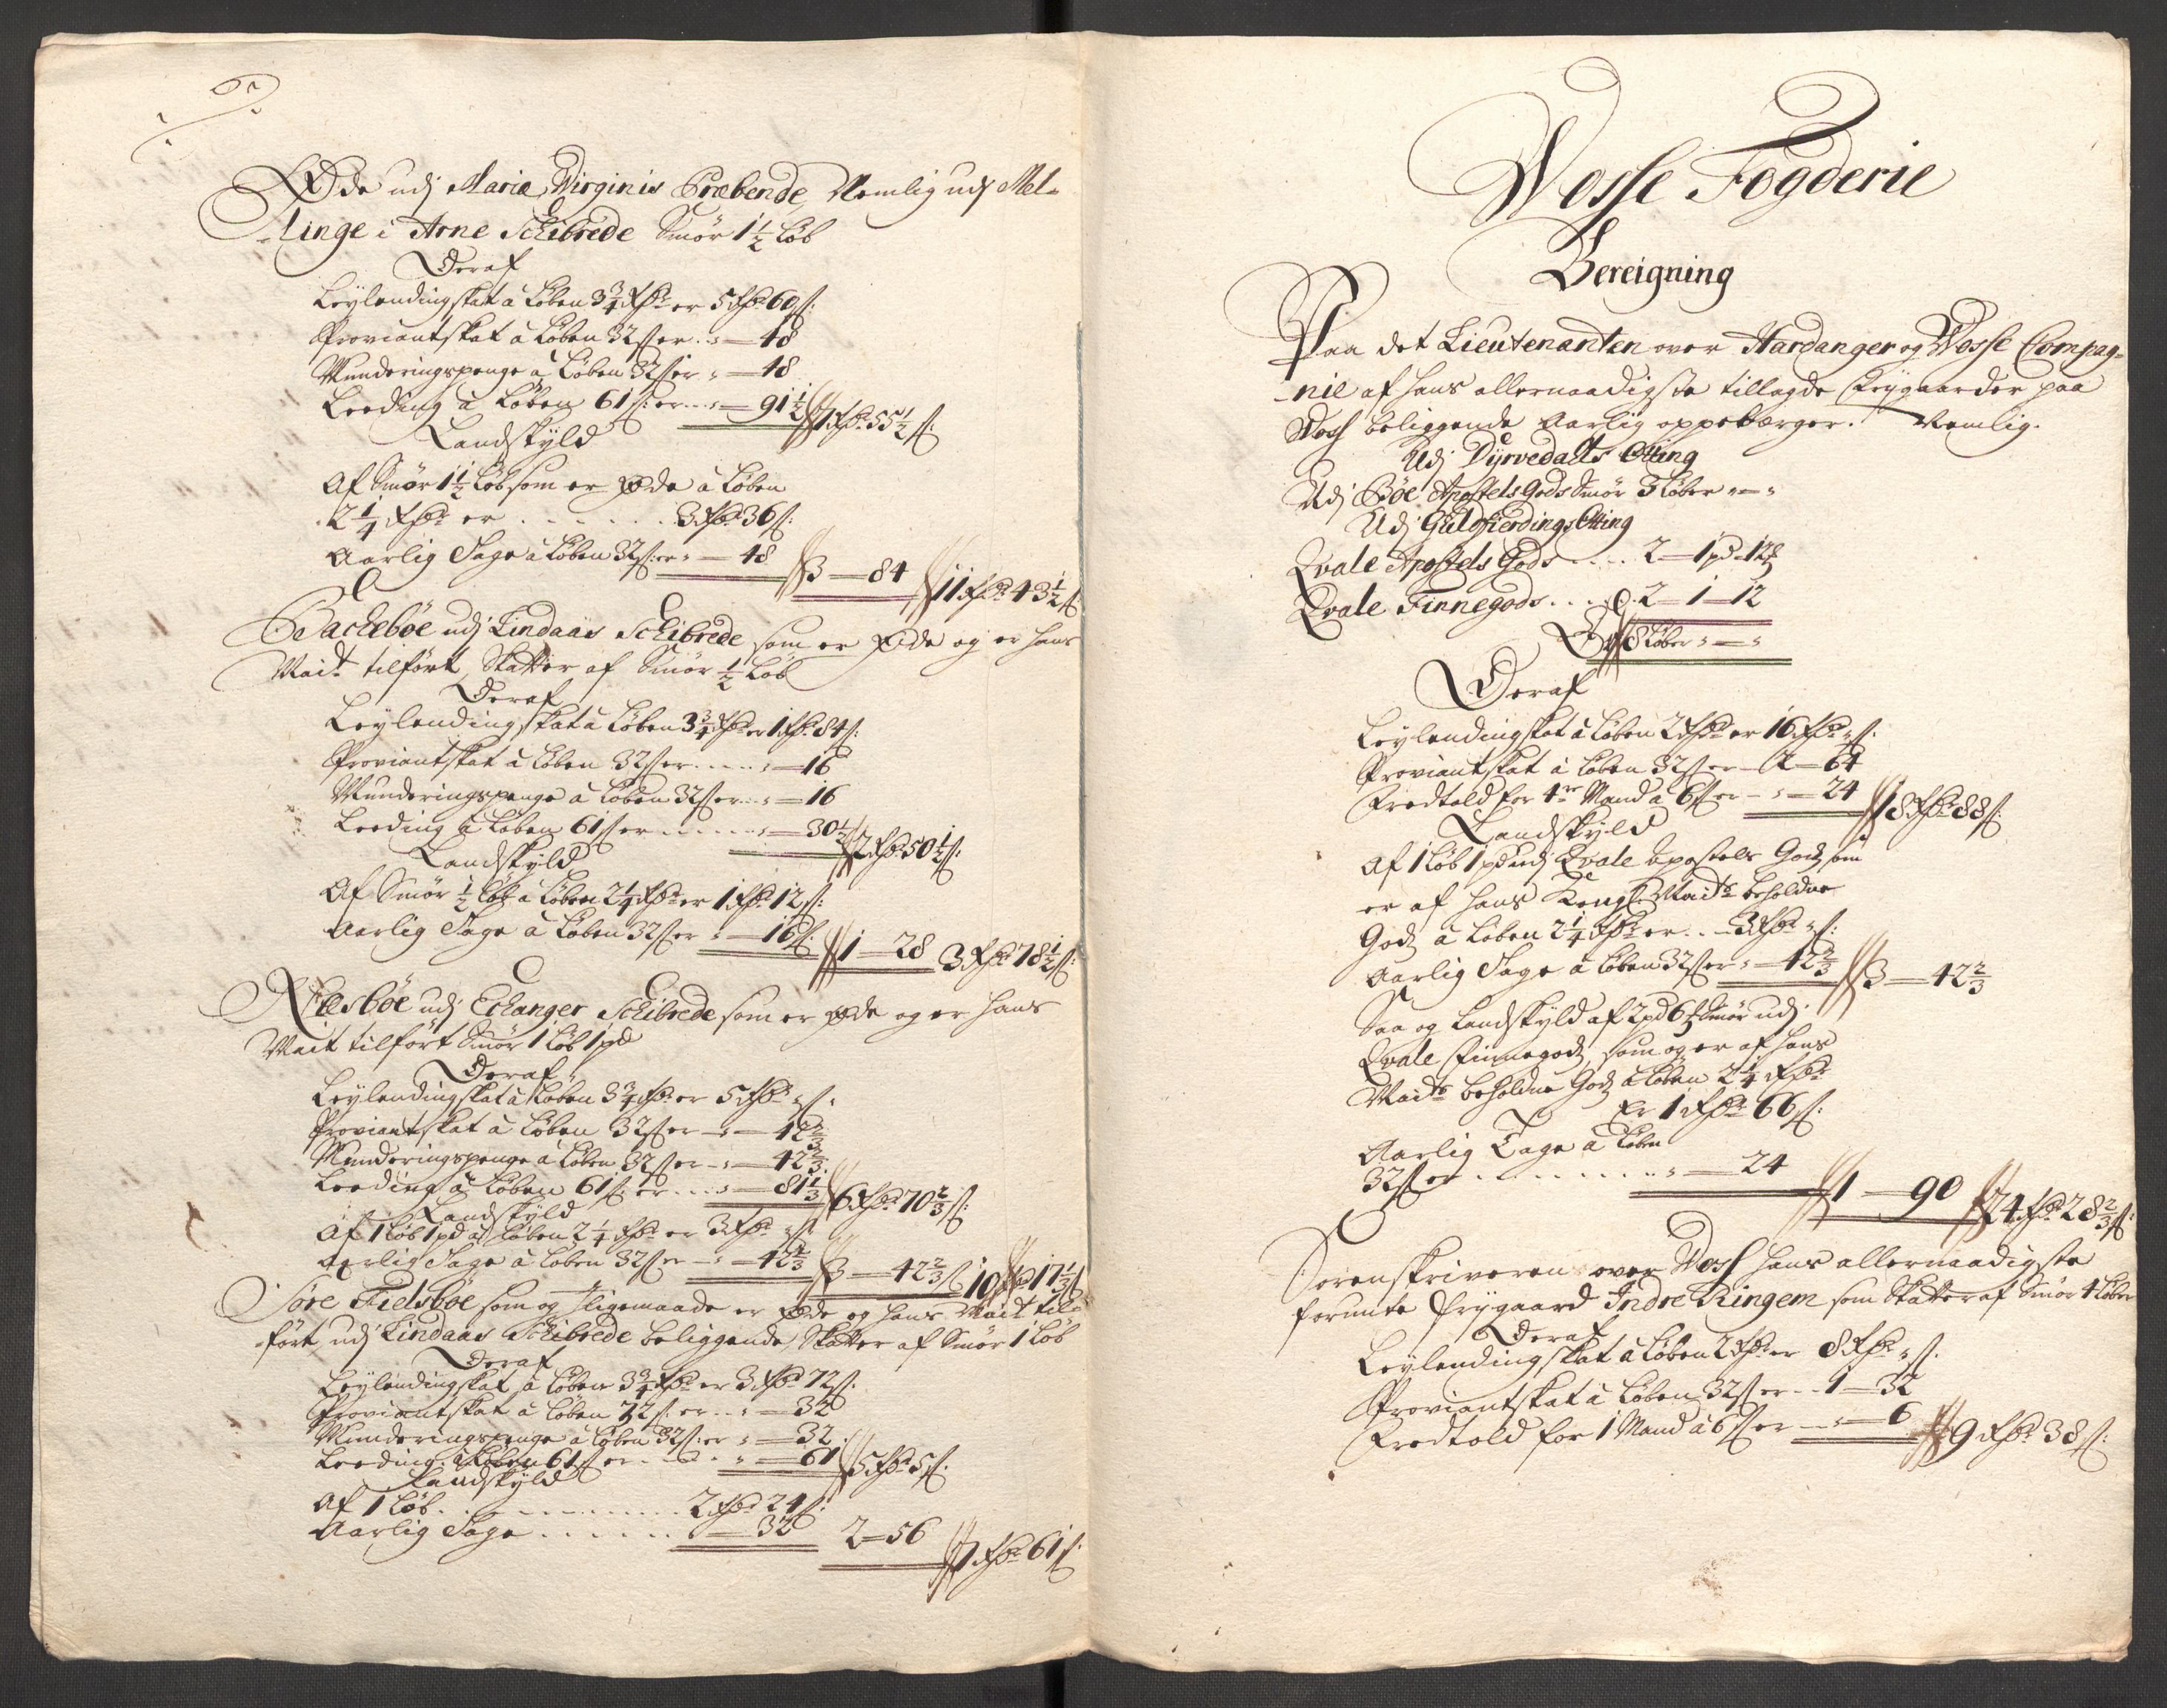 Øde udj Mariæ Virginis Præbende, Nemlig udj Mel-
-linge i Arne Schibrede Smör 1½ Löb
Deraf
Leylendingskat à Löben 3¾ Rdr er 5 Rdr 60 s:
Proviantskat à Löben 32 s er .. " — 48
Munderingspenge à Löben 32 s er " — 48
Leeding à Löben 61 s: er ... " — 91½ 7 Rdr 55½ s:
Landskÿld
Af Smör 1½ Löb som er øde à Löben
2¼ Rdr er . . . . . . 3 Rdr 36 s:
Aarlig Tage à Löben 32 s: er " — 48 3 — 84 11 Rdr 43½ s
Bachebøe udj Lindaas Schibrede som er Øde og er hans
Mait tilfört, Skatter af Smör ½ Löb
Deraf
Leylendingskat à Löben 3¾ Rdr er 1 Rdr 84 s:
Proviantskat à Löben 32 s er ..... " — 16
Munderingspenge à Löben 32 s er ... " — 16
Leeding à Löben 61 s er ........ " — 30½ 2 Rdr 50½ s:
Landskÿld
Af Smör ½ Löb à Löben 2¼ Rdr er 1 Rdr 12 s:
Aarlig Tage à Löben 32 s er " — 16 s: 1 — 28 3 Rdr 78½ s:
udj Echanger Schibrede som er øde og er hans
Mait tilfört Smör 1 Löb 1 pd
Deraf
Leylendingskat à Löben 3¾ Rdr er 5 Rdr " s "
Proviantskat à Löben 32 s er — " — 42⅔
Munderingspenge à Löben 32 s er — " — 42⅔
Leeding à Löben 61 s: er .... " — 81⅓ 6 Rdr 70⅔ s:
Landskÿld
Af 1 Löb 1 pd à Löben 2¼ Rdr er 3 Rdr " s
Aarlig Tage à Löben 32 s er — " — 42⅔ 3 — 42⅔ s 10 Rdr 17⅓ s
Söre Fielsbøe som og Iligemaade er Øde og hans Mait til-
fört udj Lindaas Schibrede beliggende, Skatter af Smör 1 Löb
Deraf
Leylendingskat à Löben 3¾ Rdr er 3 Rdr 72 s:
Proviantskat à Löben 32 s: er ... " — 32
Munderingspenge à Löben 32 s: er " — 32
Leeding à Löben 61 s er ........ " — 61 5 Rdr 5 s:
Landskÿld
Af 1 Löb . . . . . . . . . . 2 Rdr 24 s:
Aarlig Tage . . . . . . — 32 2 — 56 7 Rdr 61 s:
Wosse Fogderie
Bereigning
Paa det Lieutenanten over Hardanger og Wosse Compag-
-nie af hans allernaadigste tillagde Frÿgaarder paa
Woss beliggende Aarlig oppebærger. Nemlig.
Udj Dÿrvedalls Otting
Udj Bøe Apostels Gods Smör 3 Löber " — "
Udj Guldfierdings Otting
Qvale Apostels Gods .... 2 — 1 pd — 12
Qvale Finnegods ..... 2 — 1 — 12
8 Löber " — "
Deraf
Leylendingskat à Löben 2 Rdr er 16 Rdr " s:
Proviantskat à Löben 32 s er — 2 — 64
Fredtold for 4re Mand à 6 s er — " — 24 18 Rdr 88 s:
Landskÿld
Af 1 Löb 1 pd udj Qvale Apostels Gods som
er af hans Kongl: Maits beholdne
Gods à Löben 2¼ Rdr er ... 3 Rdr " s:
Aarlig Tage à Löben 32 s er " — 42⅔ 3 — 42⅔
Saa og Landskÿld af 2 pd 6 Smör udj
Qvale Finnegods, som og er af hans
Maits beholdne Gods à Löben 2¼ Rdr
Er 1 Rdr 66 s:
Aarlig Tage à Löben
32 s er . . . . . . . . . " — 24 1 — 90 24 Rdr 28⅔ s:
Sorenskriveren over Woss hans allernaadigste
forunte Frÿgaard Indre Ringem som Skatter af Smör 4 Löber
Deraf
Leylendingskat à Löben 2 Rdr er 8 Rdr " s:
Proviantskat à Löben 32 s er .. 1 — 32
Fredtold for 1 Mand à 6 s er — " — 6 9 Rdr 38 s: